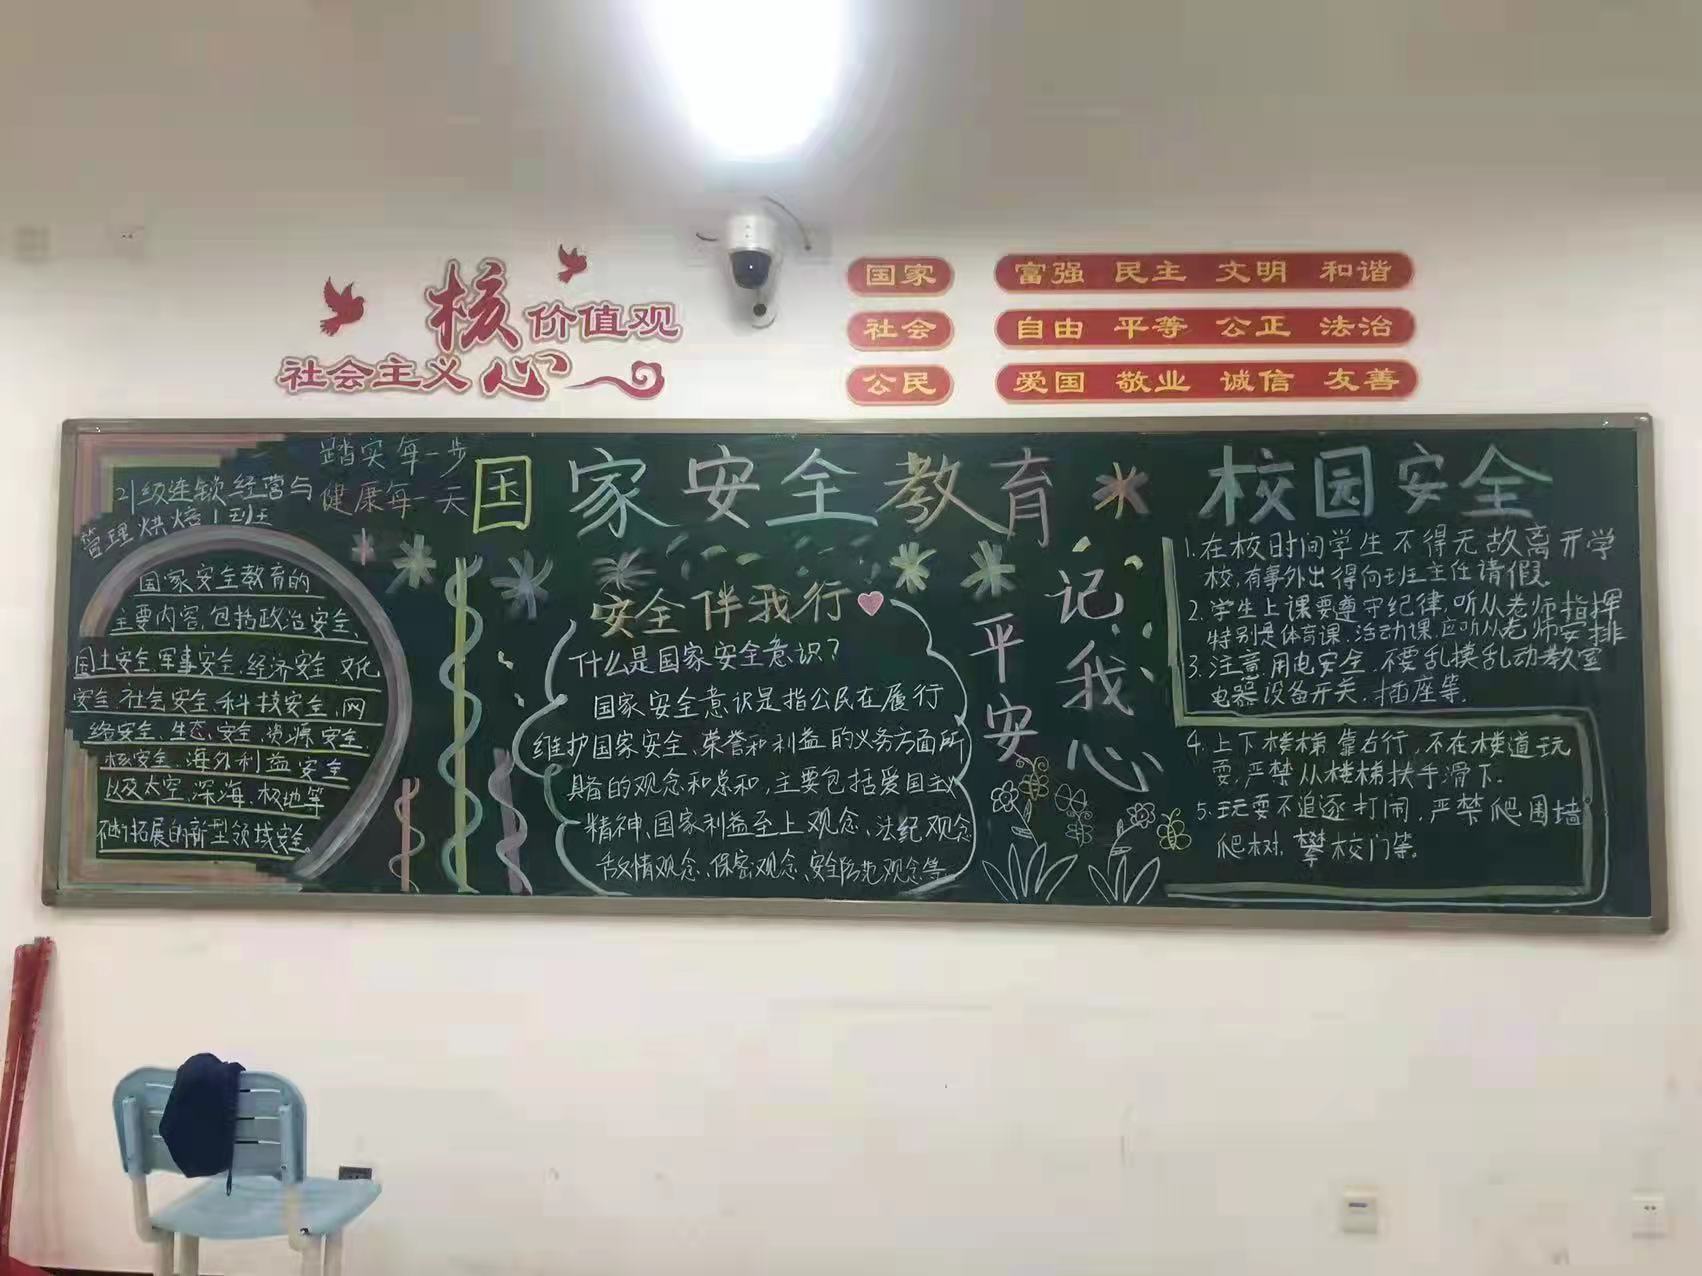 核
价值观
社会主义
心
国家 富强 民主 文明 和谐
社会 自由 平等 公正 法治
公民 爱国 敬业 诚信 友善
踏实每一步
健康每一天
21级连锁经营与
管理烘焙1班
国家安全教育的
主要内容,包括政治安全、
国土安全、军事安全、经济安全、文化
安全、社会安全、科技安全、网
络安全、生态安全、资源安全、
核安全、海外利益安全
以及太空、深海、极地等
拓展的新型领域安全。
国家安全教育
安全伴我行
什么是国家安全意识?
国家安全意识是指公民在履行
维护国家安全、荣誉和利益的义务方面所
具备的观念和总和,主要包括爱国主义
精神、国家利益至上观念、法纪观念
敌情观念、保密观念、安全防范观念等
平安
记我心
校园安全
1.在校时间学生不得无故离开学
校,有事外出得向班主任请假。
2.学生上课要遵守纪律,听从老师指挥
特别是体育课、活动课,应听从老师安排
3.注意用电安全,不要乱摸乱动教室
电器设备开关、插座等。
4.上下楼梯靠右行,不在楼道玩
耍,严禁从楼梯扶手滑下.
5.玩耍不追逐打闹,严禁爬围墙
爬树,攀校门等。